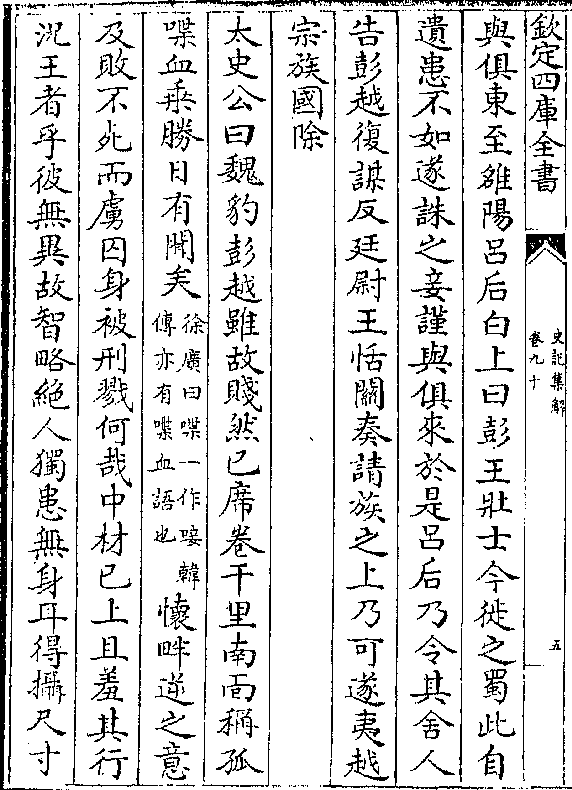 欽定四庫全書
史記集解
卷九十
五
與俱東至雒陽呂后白上曰彭王壯士今徙之蜀此自
遺患不如遂誅之妾謹與俱來於是呂后乃令其舍人
告彭越復謀反廷尉王恬關奏請族之上乃可遂夷越
宗族國除
太史公曰魏豹彭越雖故賤然已席卷千里南面稱孤
喋血乘勝日有聞矣徐廣曰喋一作唼韓傳亦有喋血語也懷畔逆之意
及敗不死而虜囚身被刑戮何哉中材已上且羞其行
況王者乎彼無異故智略絶人獨患無身耳得攝尺寸